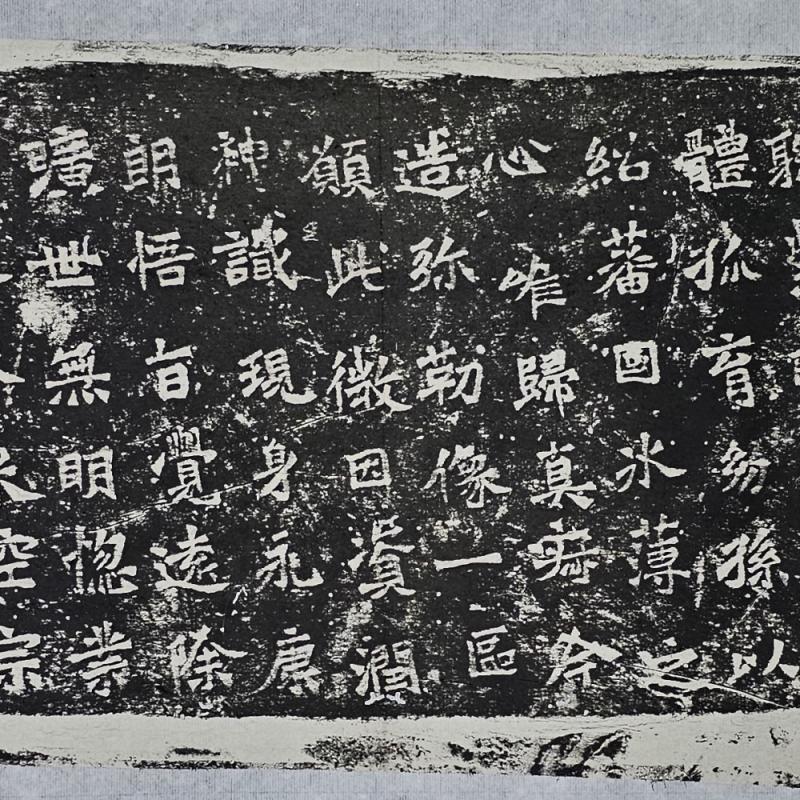 體孤育幼孫以
紹蕃國冰薄之
心唯歸真
造弥勒像一區
願此微因資潤
神識現身永康
朗悟旨覺遠除
曠世無明惚業
空宗